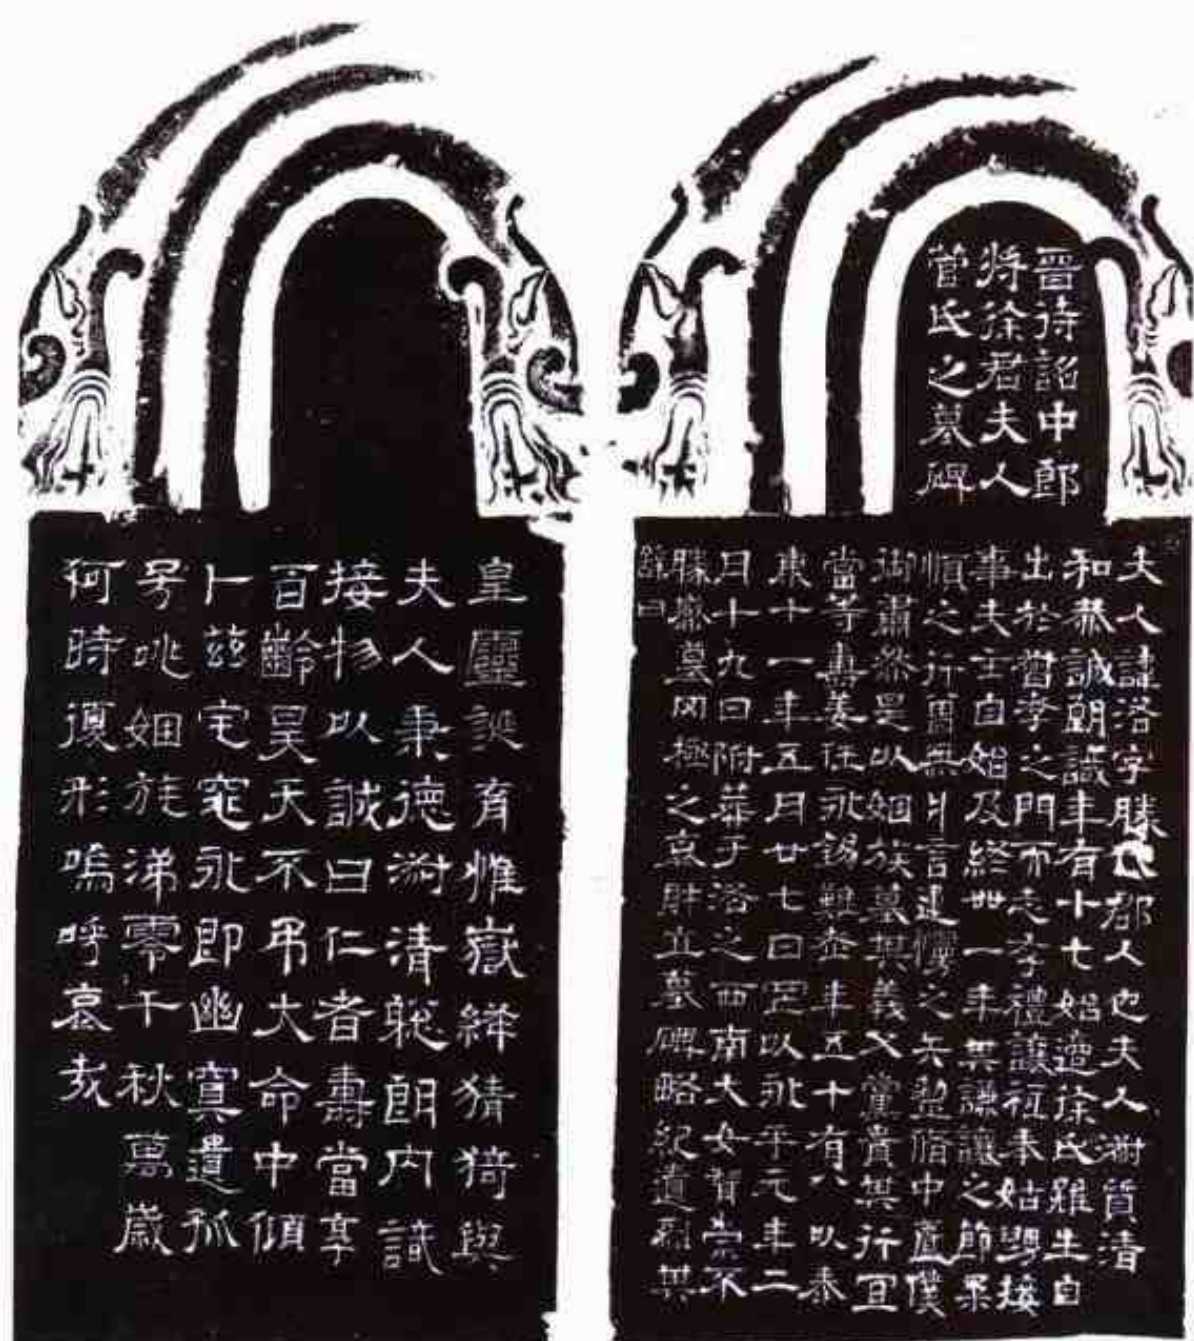 晉待詔中郎
將徐君夫人
菅氏之墓碑
夫人諱洛字勝代郡人也夫人淑質清
和恭誠朗識年有十七始適徐氏雖生自
出於督孝之門而志存禮讓祗奉姑舅接
事夫主自始及終卌一年其謙讓之節柔
順之行曾無片言違慢之矢整脩中匱僕
御肅然是以姻族慕其義父黨貴其行宜
當等壽姜任永錫難老年五十有八以泰
康十一年五月廿七日寔以永平元年二
月十九日附葬于洛之西南大女智崇不
勝感慕罔極之哀財立墓碑略紀遺烈其
辭曰
皇靈誕育惟嶽絳猜猗與
夫人秉德淑清聡朗內識
接物以誠曰仁者壽當享
百齡昊天不弔大命中傾
卜茲宅窀永即幽冥遺孤
号咷姻族涕零千秋萬歲
何時復形嗚呼哀哉